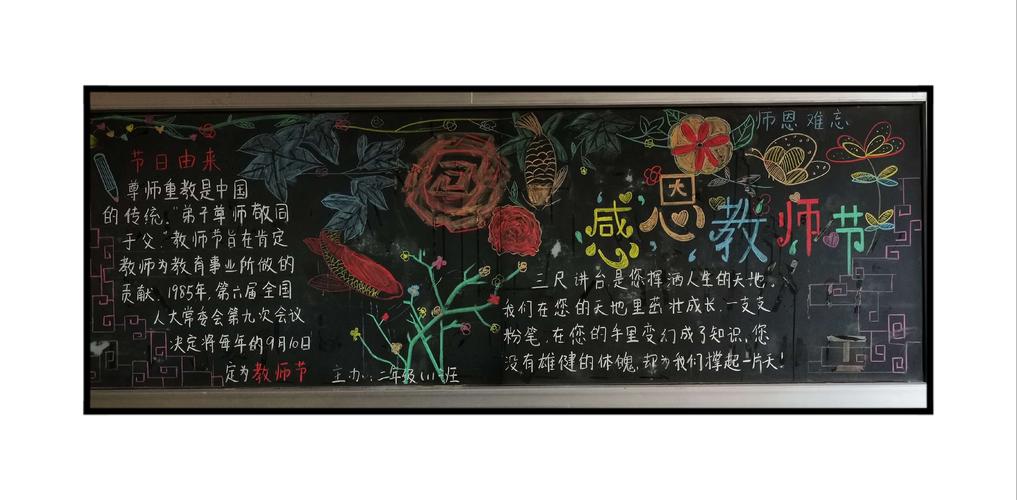 节日由来
尊师重教是中国
的传统。"弟子尊师敬同
于父。"教师节旨在肯定
教师为教育事业所做的
贡献。1985年，第六届全国
人大常委会第九次会议
决定将每年的9月10日
定为教师节
主办：二年级(1)班
师恩难忘
感恩教师节
三尺讲台是您挥洒人生的天地。
我们在您的天地里茁壮成长。一支支
粉笔，在您的手里变幻成了知识，您
没有雄健的体魄，却为我们撑起一片天！